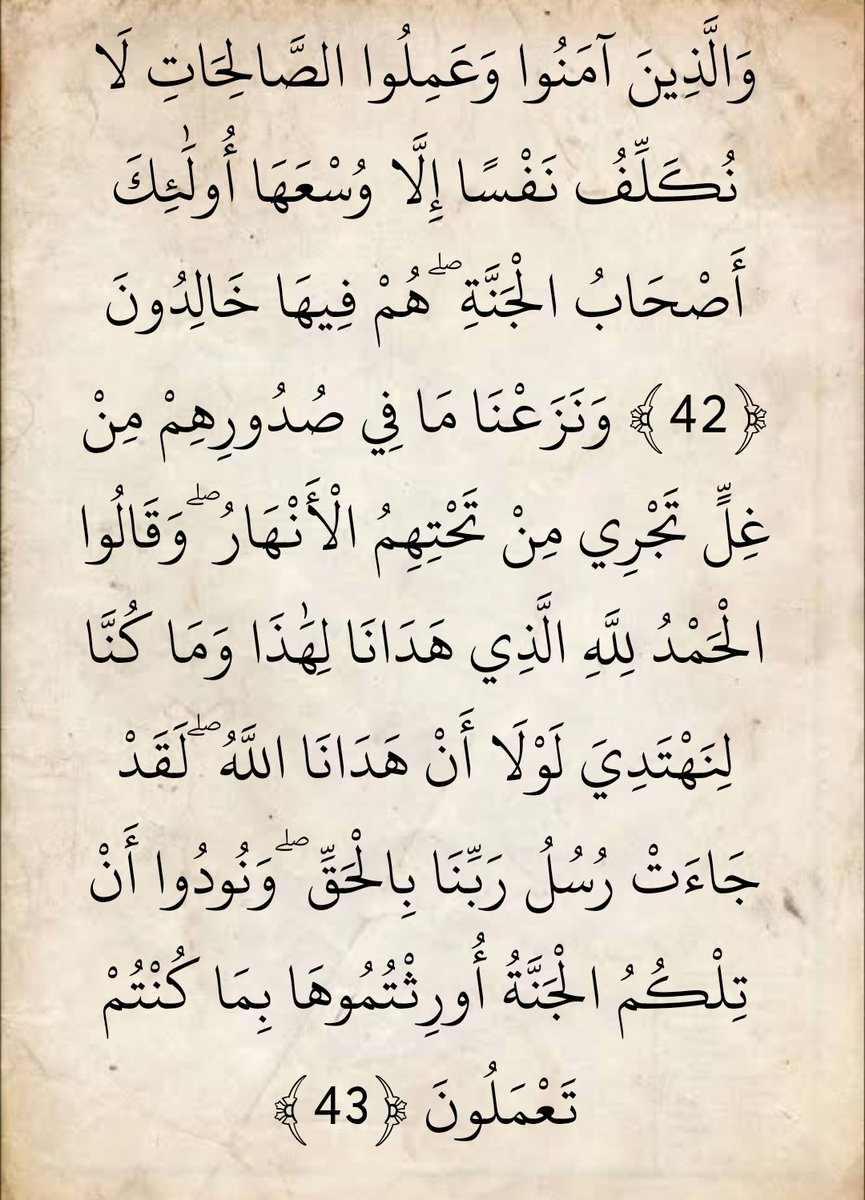 وَالَّذِينَ آمَنُوا وَعَمِلُوا الصَّالِحَاتِ لَا
نُكَلِّفُ نَفْسًا إِلَّا وُسْعَهَا أُولَٰئِكَ
أَصْحَابُ الْجَنَّةِ ۖ هُمْ فِيهَا خَالِدُونَ
﴿42﴾ وَنَزَعْنَا مَا فِي صُدُورِهِمْ مِنْ
غِلٍّ تَجْرِي مِنْ تَحْتِهِمُ الْأَنْهَارُ ۖ وَقَالُوا
الْحَمْدُ لِلَّهِ الَّذِي هَدَانَا لِهَٰذَا وَمَا كُنَّا
لِنَهْتَدِيَ لَوْلَا أَنْ هَدَانَا اللَّهُ ۖ لَقَدْ
جَاءَتْ رُسُلُ رَبِّنَا بِالْحَقِّ ۖ وَنُودُوا أَنْ
تِلْكُمُ الْجَنَّةُ أُورِثْتُمُوهَا بِمَا كُنْتُمْ
تَعْمَلُونَ ﴿43﴾